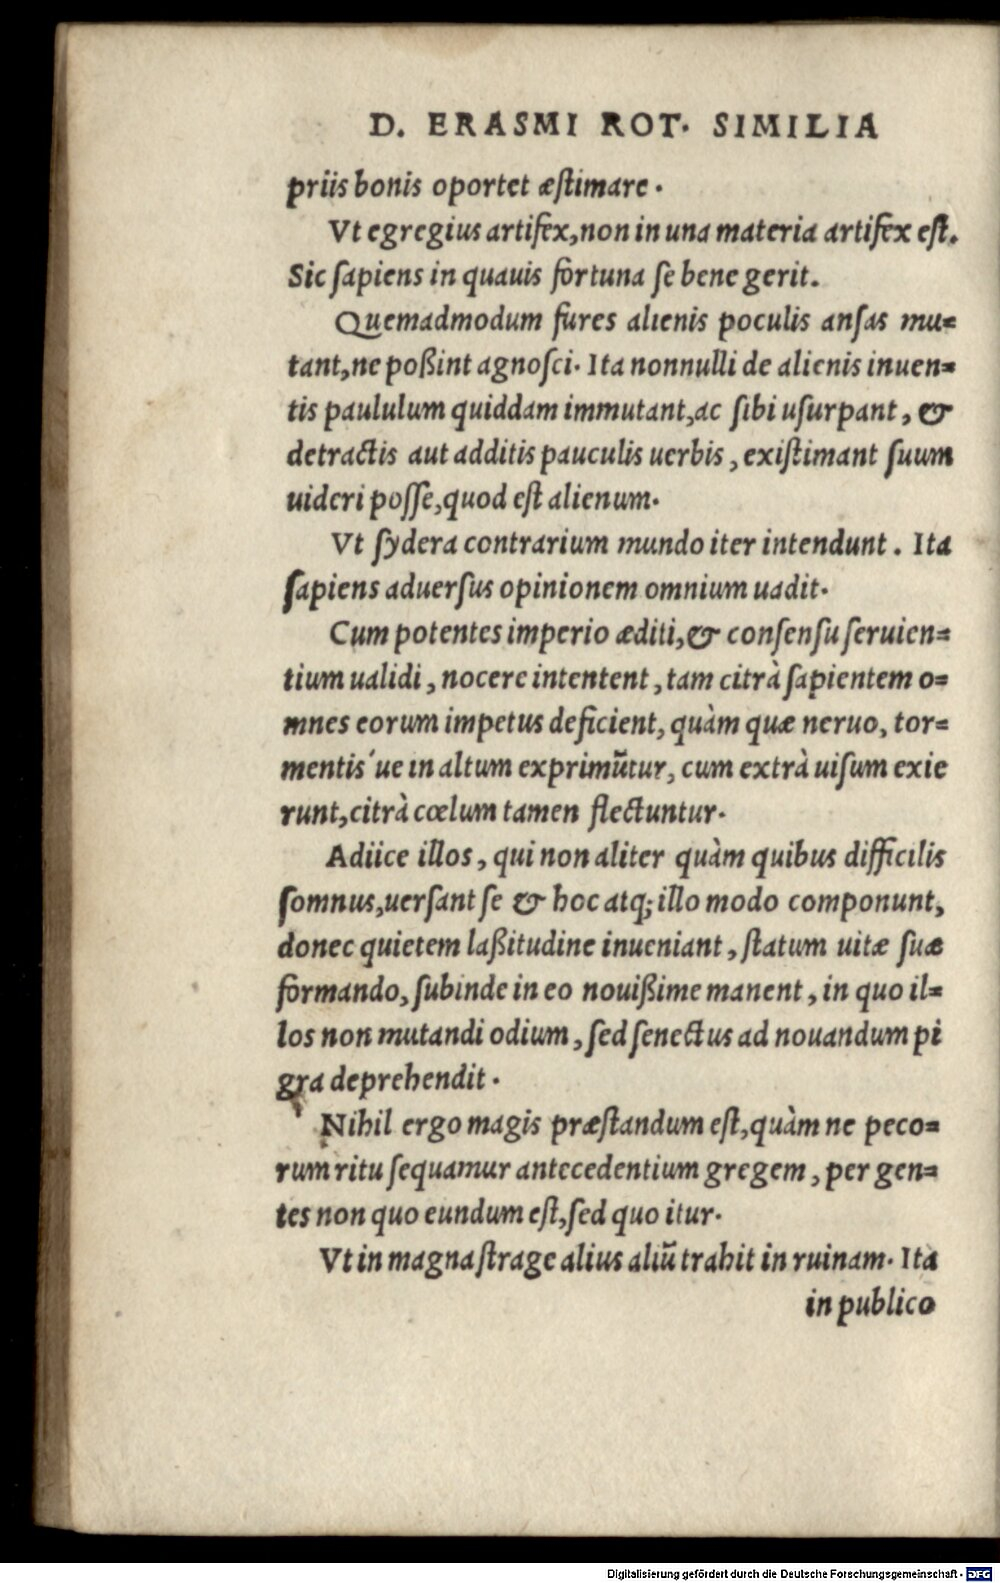 D. ERASMI ROT. SIMILIA
priis bonis oportet æstimare.
Vt egregius artifex, non in una materia artifex est.
Sic sapiens in quauis fortuna se bene gerit.
Quemadmodum fures alienis poculis ansas mu=
tant, ne poßint agnosci. Ita nonnulli de alienis inuen=
tis paululum quiddam immutant, ac sibi usurpant, &
detractis aut additis pauculis uerbis, existimant suum
uideri posse, quod est alienum.
Vt sydera contrarium mundo iter intendunt. Ita
sapiens aduersus opinionem omnium uadit.
Cum potentes imperio æditi, & consensu seruien=
tium ualidi, nocere intentent, tam citrà sapientem o=
mnes eorum impetus deficient, quàm quæ neruo, tor=
mentis´ue in altum exprimũtur, cum extrà uisum exie
runt, citrà cœlum tamen flectuntur.
Adiice illos, qui non aliter quàm quibus difficilis
somnus, uersant se & hoc atq; illo modo componunt,
donec quietem laßitudine inueniant, statum uitæ suæ
formando, subinde in eo nouißime manent, in quo il=
los non mutandi odium, sed senectus ad nouandum pi
gra deprehendit.
Nihil ergo magis præstandum est, quàm ne peco=
rum ritu sequamur antecedentium gregem, per gen=
tes non quo eundum est, sed quo itur.
Vt in magna strage alius aliũ trahit in ruinam. Ita
in publico
Digitalisierung gefördert durch die Deutsche Forschungsgemeinschaft - DFG